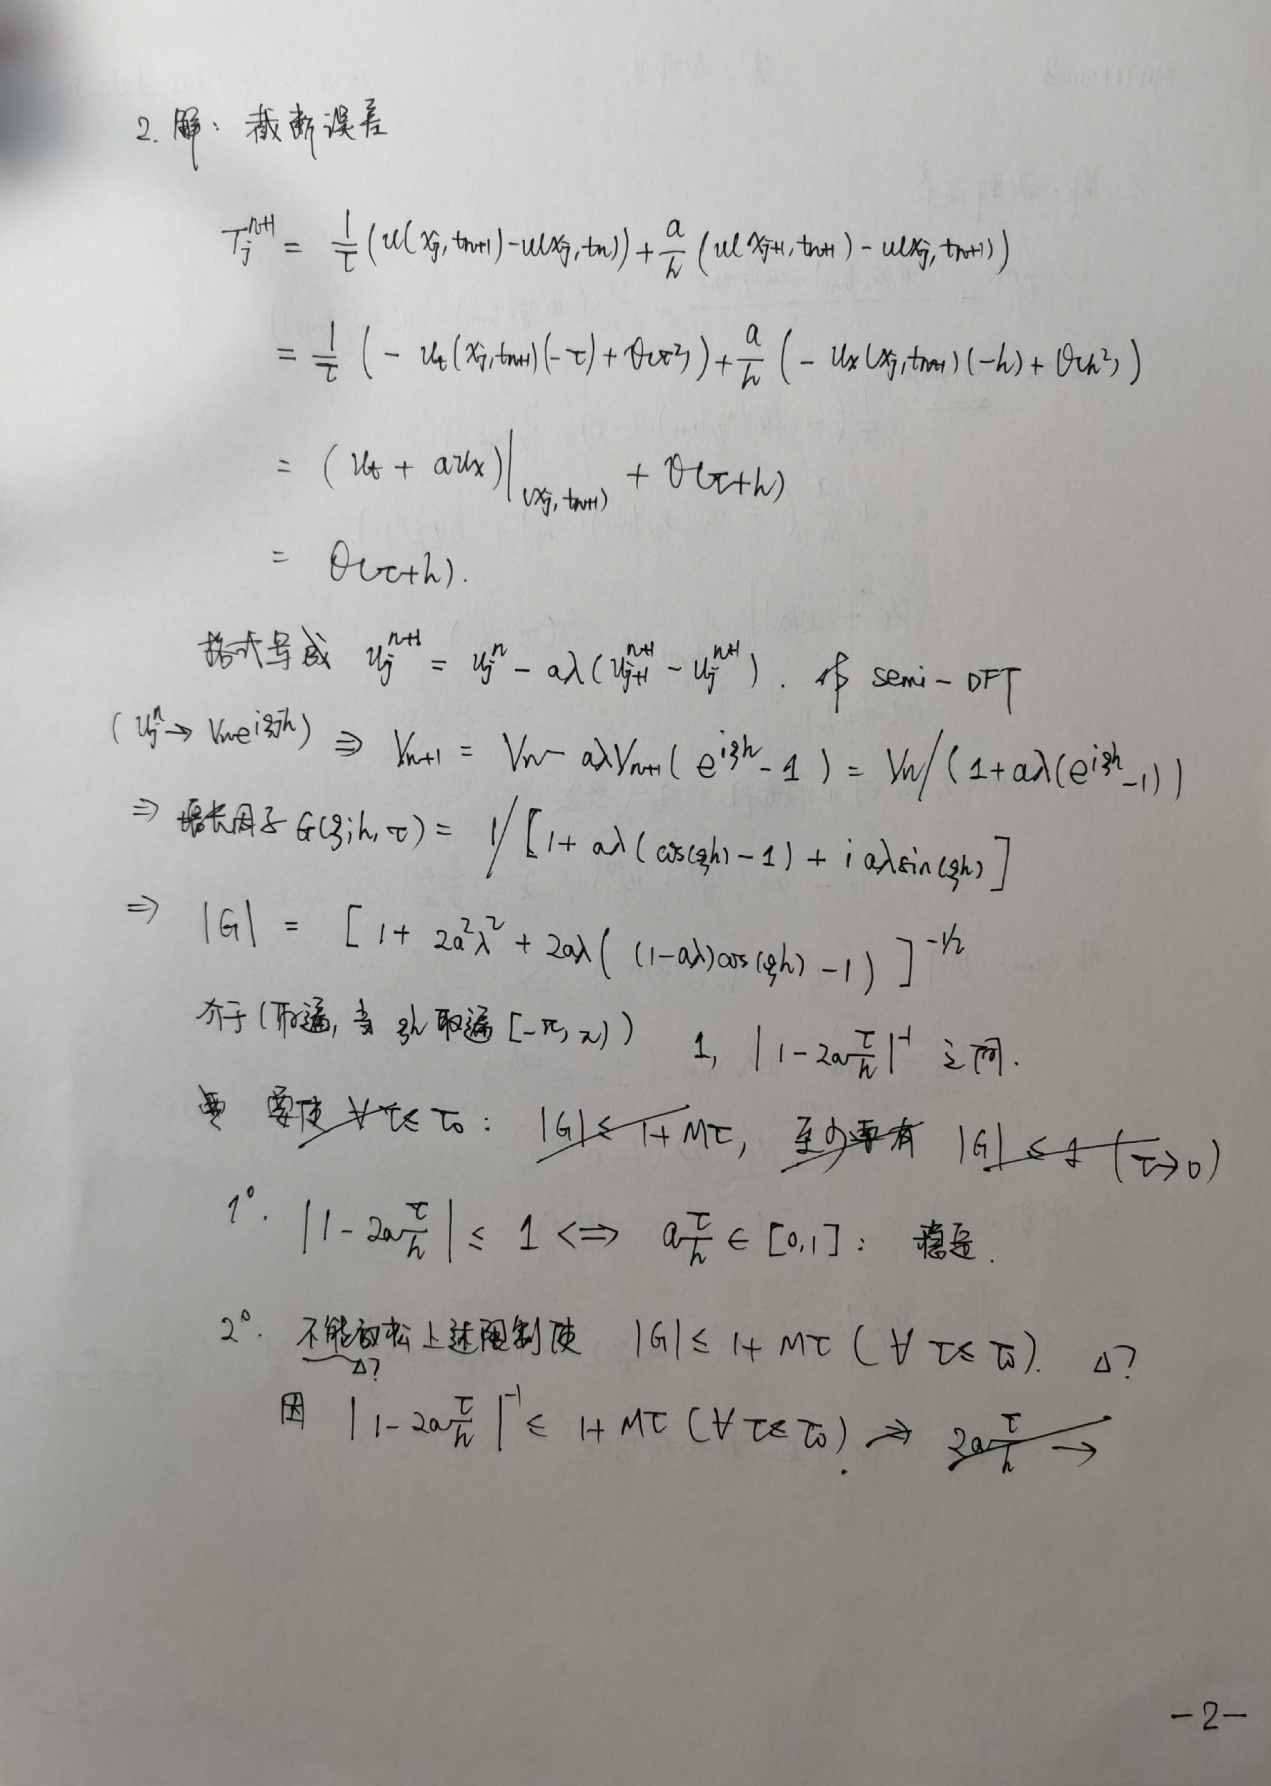 2. 解: 截断误差
T_j^{n+1} = 1/τ (u(x_j, t_{n+1}) - u(x_j, t_n)) + a/h (u(x_{j+1}, t_{n+1}) - u(x_j, t_{n+1}))
= 1/τ (- u_t(x_j, t_{n+1})(-τ) + O(τ²)) + a/h (- u_x(x_j, t_{n+1})(-h) + O(h²))
= (u_t + au_x)|_{(x_j, t_{n+1})} + O(τ+h)
= O(τ+h).
格式写成 u_j^{n+1} = u_j^n - aλ(u_{j+1}^{n+1} - u_j^{n+1}). 作 semi-DFT
(u_j^n → V_n e^{iξjh}) ⇒ V_{n+1} = V_n - aλV_{n+1}(e^{iξh} - 1) = V_n/(1+aλ(e^{iξh}-1))
⇒ 增长因子 G(ξ;h,τ) = 1/[1+aλ(cos(ξh)-1) + i aλsin(ξh)]
⇒ |G| = [1+ 2a²λ² + 2aλ((1-aλ)cos(ξh) -1)]^{-1/2}
介于(取遍, 当 ξh 取遍 [-π, π)) 1, |1-2a τ/h|^{-1} 之间.
要使 ∀τ≤τ₀: |G|≤1+Mτ, 至少要有 |G|≤1 (τ→0)
1°. |1-2a τ/h| ≤ 1 <=> a τ/h ∈ [0,1]: 稳定.
2°. 不能放松上述限制使 |G|≤ 1+Mτ (∀ τ≤τ₀). Δ?
Δ?
因 |1-2a τ/h|^{-1} ≤ 1+Mτ (∀τ≤τ₀). ⇒ 2a τ/h →
-2-